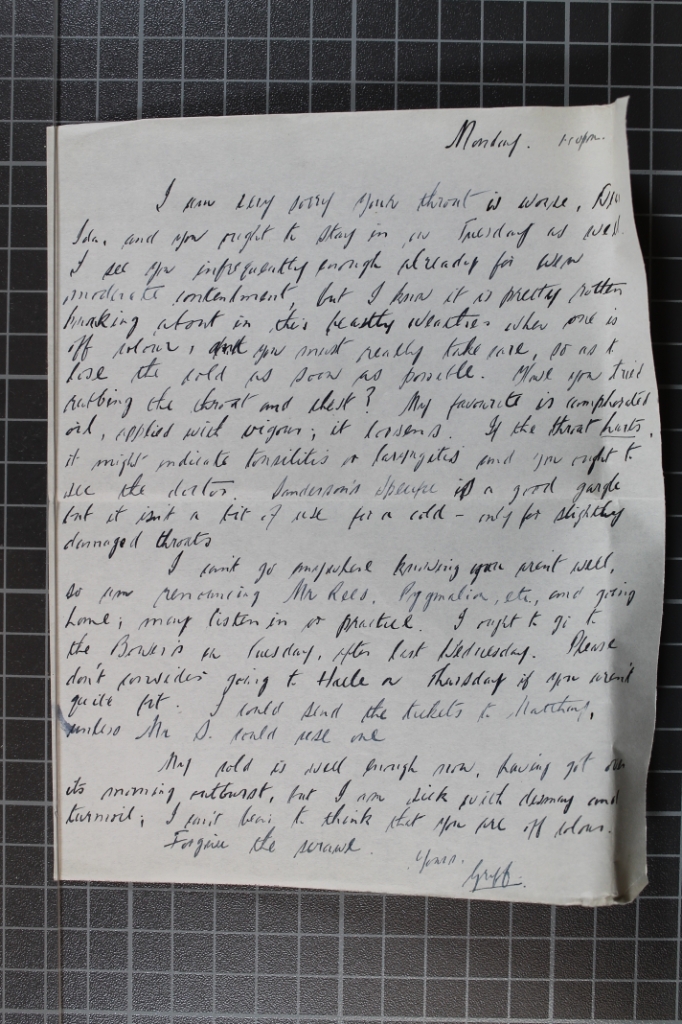 Monday. 1.10pm.
I am very sorry your throat is worse,
Ida, and you ought to stay in on Tuesday as well.
I see you infrequently enough already for even
moderate contentment, but I know it is pretty rotten
barking about in this beastly weather when one is
off colour; and you must really take care, so as to
lose the cold as soon as possible. Have you tried
rubbing the throat and chest? My favourite is camphorated
oil, applied with vigour; it loosens. If the throat hurts,
it might indicate tonsilitis or laryngitis and you ought to
see the doctor. Sanderson's Specific is a good gargle
but it isn't a bit of use for a cold - only for slightly
damaged throats
I can't go anywhere knowing you aren't well,
so am renouncing Mr Rees, Pygmalion, etc, and going
home; may listen in or practice. I ought to go to
the Bower's on Tuesday, after last Wednesday. Please
don't consider going to Halle on Thursday if you aren't
quite fit. I could send the tickets to
unless Mr S. could use one
My cold is well enough now, having got over
its morning outburst, but I am sick with dismay and
turmoil; I can't bear to think that you are off colour.
Forgive the scrawl.
Yours.
Gryff.